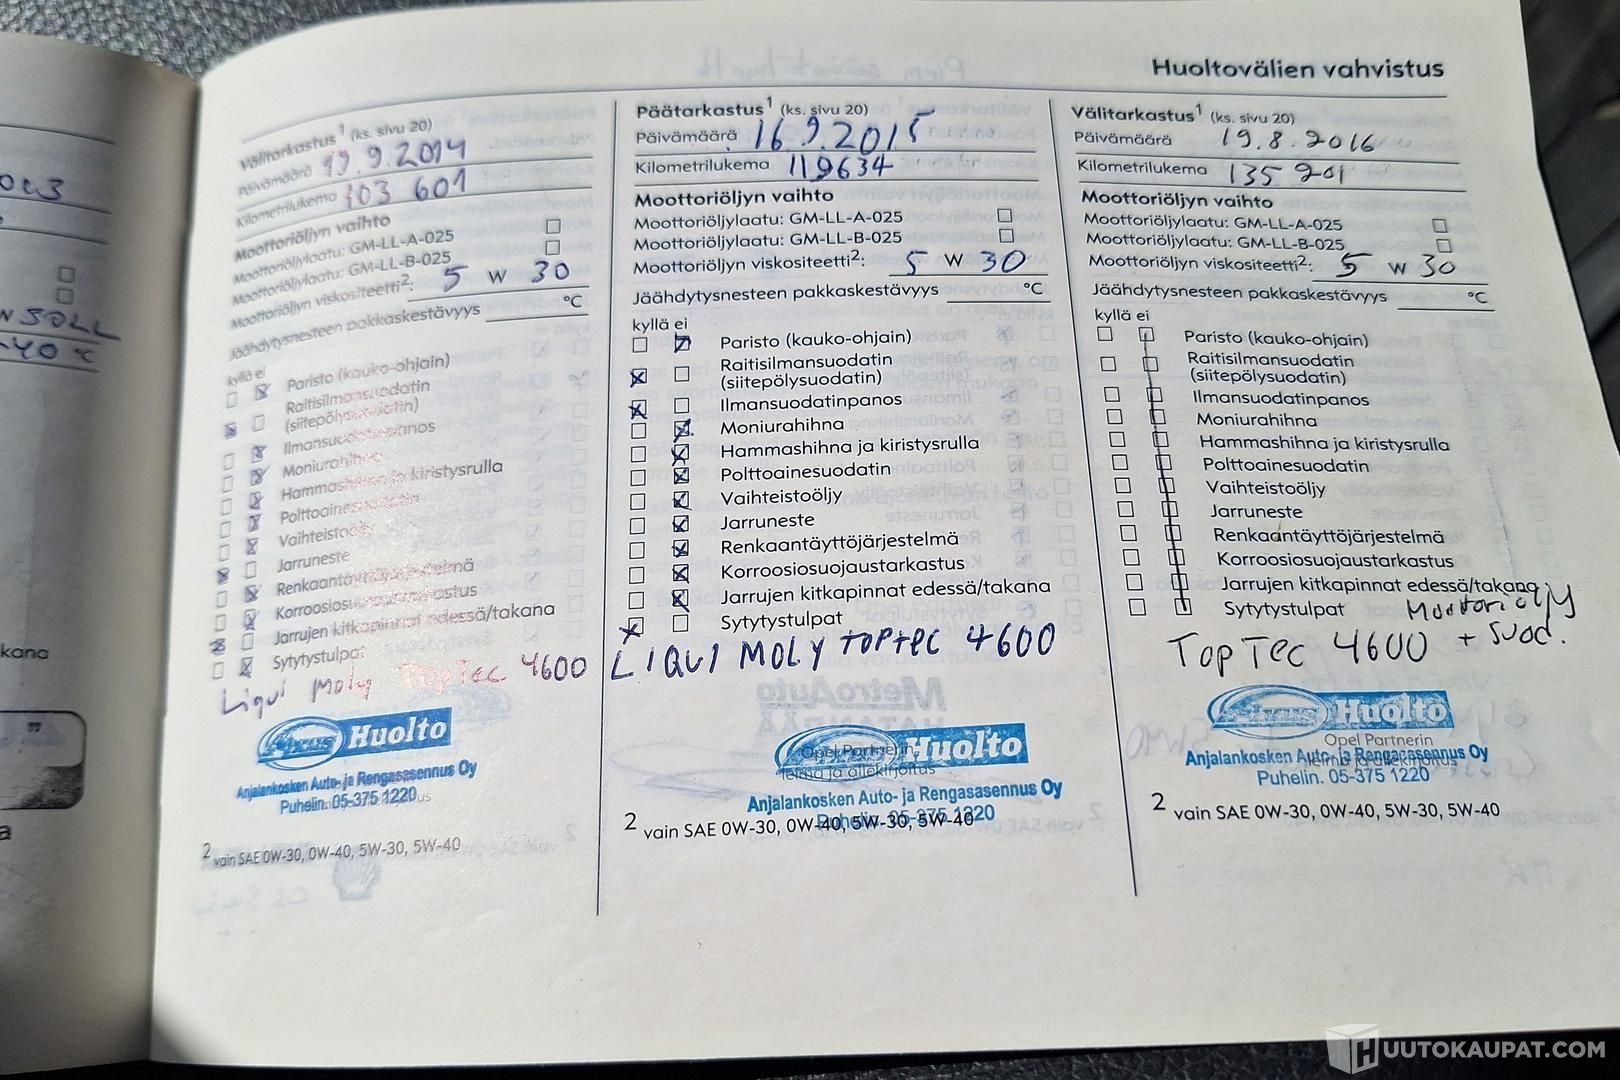 Huoltovälien vahvistus
Välitarkastus¹ (ks. sivu 20)
Päivämäärä 19.9.2014
Kilometrilukema 103 601
Moottoriöljyn vaihto
Moottoriöljylaatu: GM-LL-A-025
Moottoriöljylaatu: GM-LL-B-025
Moottoriöljyn viskositeetti²: 5 W 30
Jäähdytysnesteen pakkaskestävyys °C
kyllä ei
Paristo (kauko-ohjain)
Raitisilmansuodatin
(siitepölysuodatin)
Ilmansuodatinpanos
Moniurahihna
Hammashihna ja kiristysrulla
Polttoainesuodatin
Vaihteistoöljy
Jarruneste
Renkaantäyttöjärjestelmä
Korroosiosuojaustarkastus
Jarrujen kitkapinnat edessä/takana
Sytytystulpat
Liqui Moly TopTec 4600
Huolto
Anjalankosken Auto- ja Rengasasennus Oy
Puhelin. 05-375 1220
² vain SAE 0W-30, 0W-40, 5W-30, 5W-40
Päätarkastus¹ (ks. sivu 20)
Päivämäärä 16.9.2015
Kilometrilukema 119634
Moottoriöljyn vaihto
Moottoriöljylaatu: GM-LL-A-025
Moottoriöljylaatu: GM-LL-B-025
Moottoriöljyn viskositeetti²: 5 W 30
Jäähdytysnesteen pakkaskestävyys °C
kyllä ei
Paristo (kauko-ohjain)
Raitisilmansuodatin
(siitepölysuodatin)
Ilmansuodatinpanos
Moniurahihna
Hammashihna ja kiristysrulla
Polttoainesuodatin
Vaihteistoöljy
Jarruneste
Renkaantäyttöjärjestelmä
Korroosiosuojaustarkastus
Jarrujen kitkapinnat edessä/takana
Sytytystulpat
LIQUI MOLY TOPTEC 4600
Huolto
Opel Partnerin
leima ja allekirjoitus
Anjalankosken Auto- ja Rengasasennus Oy
Puhelin. 05-375 1220
² vain SAE 0W-30, 0W-40, 5W-30, 5W-40
Välitarkastus¹ (ks. sivu 20)
Päivämäärä 19.8.2016
Kilometrilukema 135 201
Moottoriöljyn vaihto
Moottoriöljylaatu: GM-LL-A-025
Moottoriöljylaatu: GM-LL-B-025
Moottoriöljyn viskositeetti²: 5 W 30
Jäähdytysnesteen pakkaskestävyys °C
kyllä ei
Paristo (kauko-ohjain)
Raitisilmansuodatin
(siitepölysuodatin)
Ilmansuodatinpanos
Moniurahihna
Hammashihna ja kiristysrulla
Polttoainesuodatin
Vaihteistoöljy
Jarruneste
Renkaantäyttöjärjestelmä
Korroosiosuojaustarkastus
Jarrujen kitkapinnat edessä/takana
Sytytystulpat Moottoriöljy
TopTec 4600 + Suod.
Huolto
Opel Partnerin
leima ja allekirjoitus
Anjalankosken Auto- ja Rengasasennus Oy
Puhelin. 05-375 1220
² vain SAE 0W-30, 0W-40, 5W-30, 5W-40
-40 °C
kana
HUUTOKAUPAT.COM